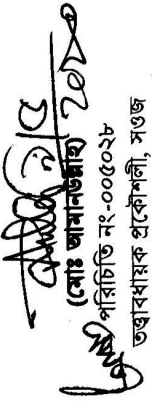 (মোঃ আমানউল্লাহ)
পরিচিতি নং-০০৫০২৮
তত্ত্বাবধায়ক প্রকৌশলী, সওজ